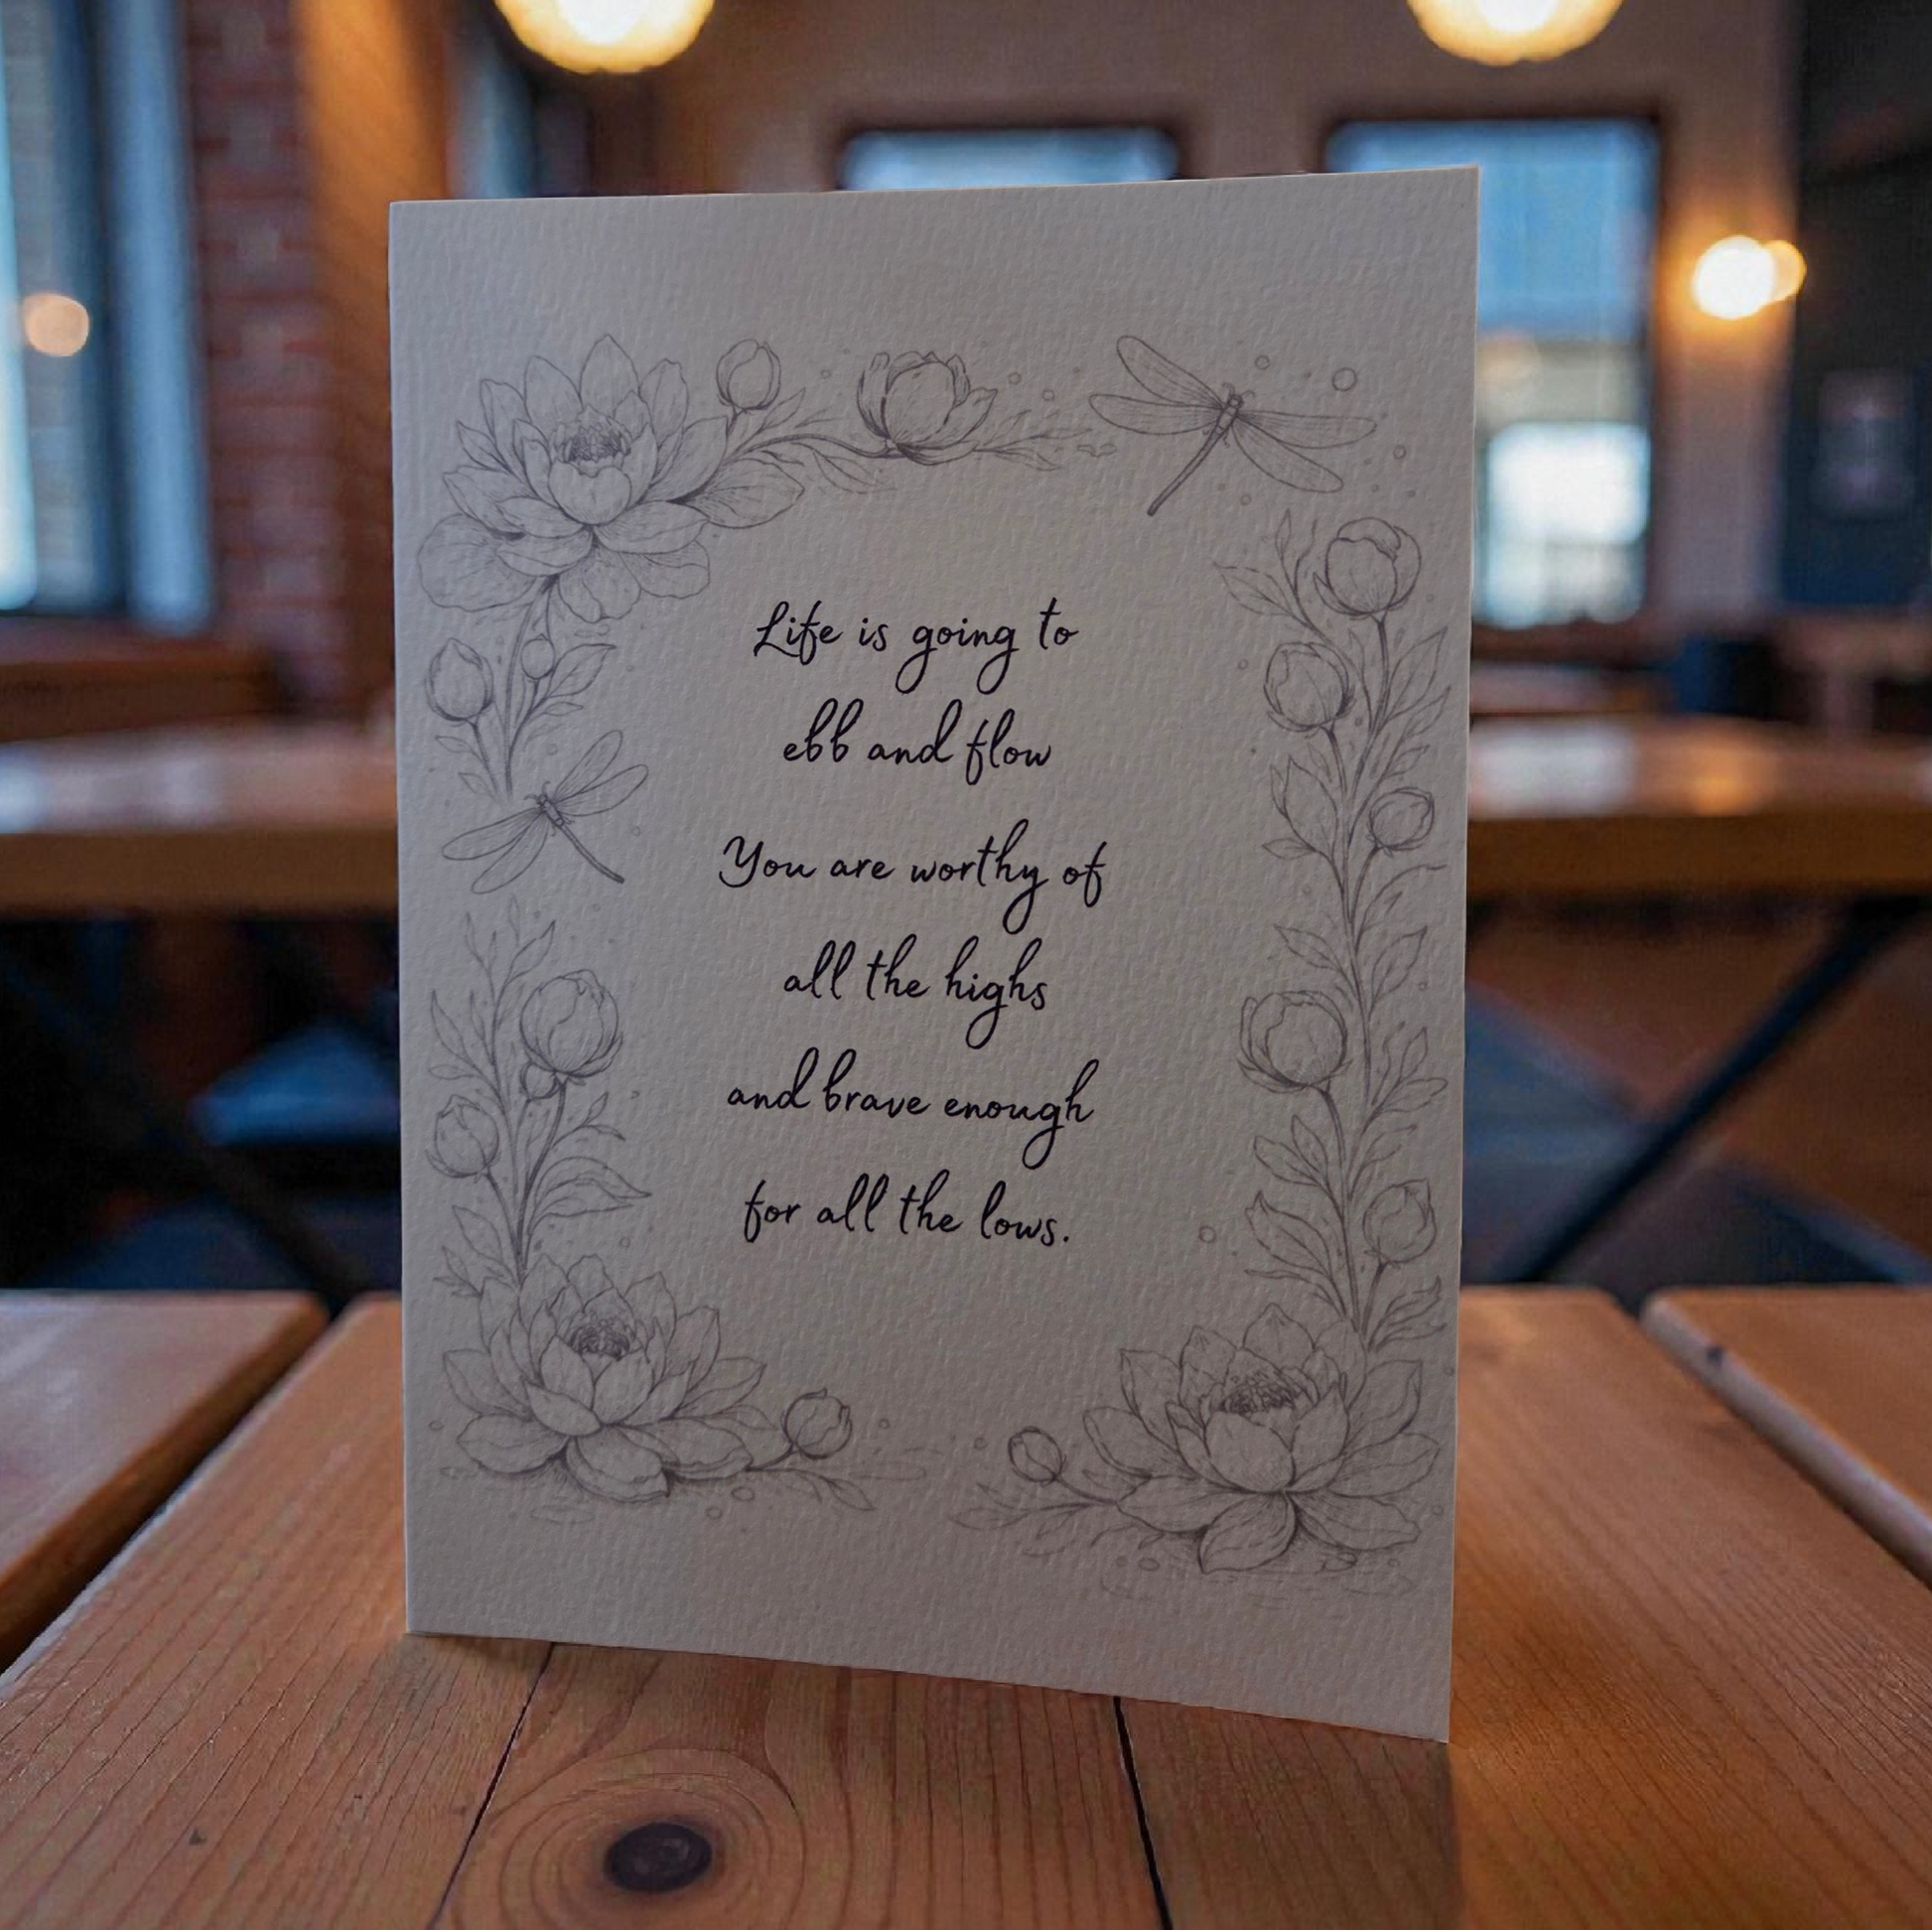 Life is going to
ebb and flow
You are worthy of
all the highs
and brave enough
for all the lows.